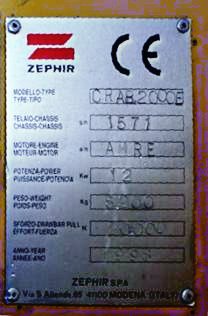 CE
ZEPHIR
MODELLO-TYPE CRAB2000E
TYPE-TIPO
TELAIO-CHASSIS n° 1571
CHASSIS-CHASSIS
MOTORE-ENGINE n° AMRE
MOTEUR-MOTOR
POTENZA-POWER Kw 12
PUISSANCE-POTENCIA
PESO-WEIGHT KG
POIDS-PESO
SFORZO-DRAWBAR PULL
EFFORT-FUERZA
ANNO-YEAR
ANNEE-ANO
ZEPHIR S.P.A.
Via S. Allende, 85 41100 MODENA (ITALY)